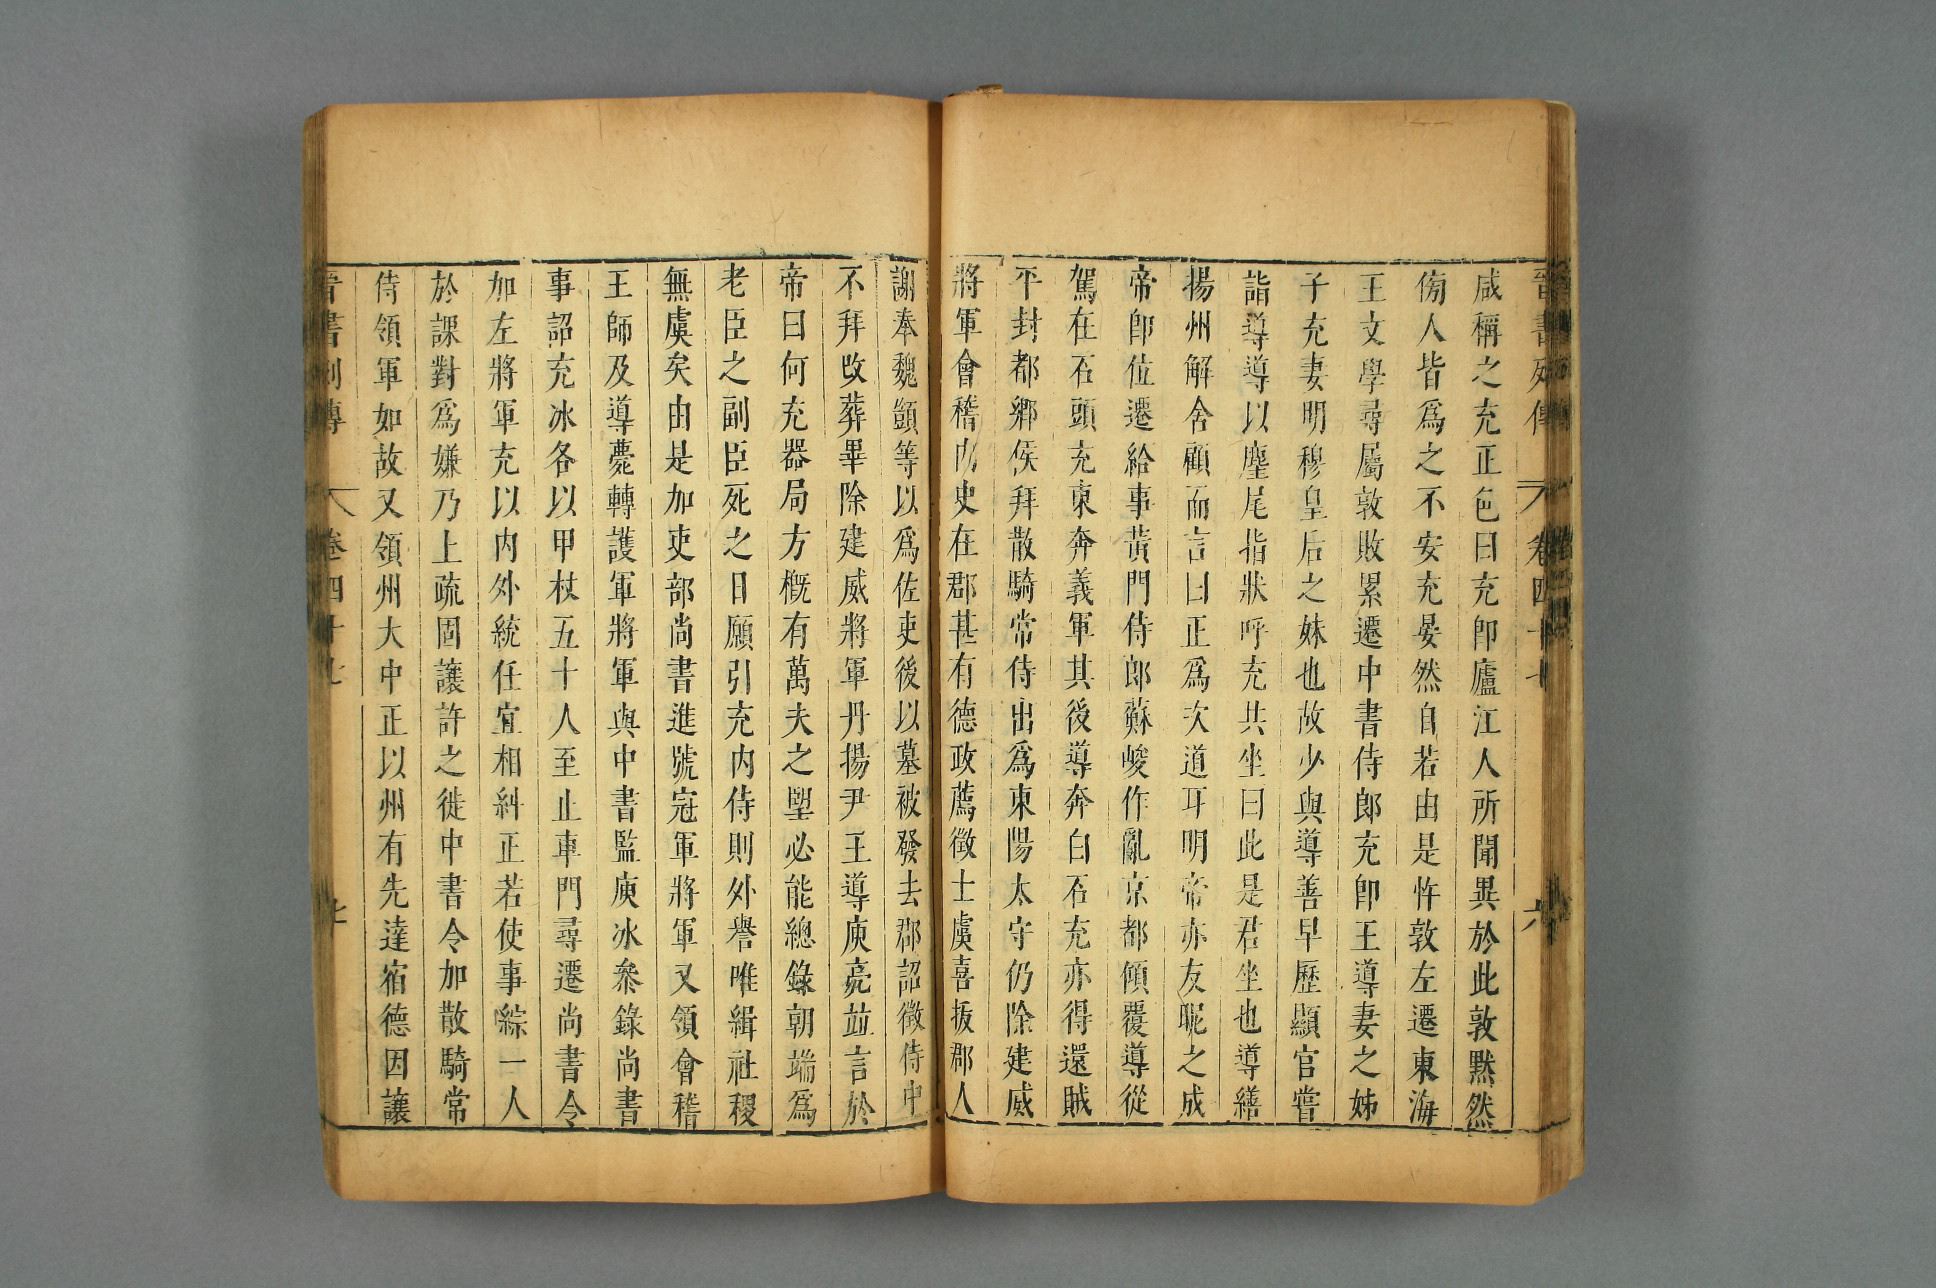 晉書列傳 卷四十七 六
咸稱之充正色曰充卽廬江人所聞異於此敦黙然
傍人皆爲之不安充晏然自若由是忤敦左遷東海
王文學尋屬敦敗累遷中書侍郎充卽王導妻之姊
子充妻明穆皇后之妹也故少與導善早歷顯官嘗
詣導導以麈尾指牀呼充共坐曰此是君坐也導繕
揚州解舍顧而言曰正爲次道耳明帝亦友昵之成
帝卽位遷給事黃門侍郎蘇峻作亂京都傾覆導從
駕在石頭充東奔義軍其後導奔白石充亦得還賊
平封都鄉侯拜散騎常侍出爲東陽太守仍除建威
將軍會稽內史在郡甚有德政薦徵士虞喜拔郡人
謝奉魏顗等以爲佐吏後以墓被發去郡詔徵侍中
不拜改葬畢除建威將軍丹揚尹王導庾亮並言於
帝曰何充器局方概有萬夫之望必能總錄朝端爲
老臣之副臣死之日願引充內侍則外譽唯緝社稷
無虞矣由是加吏部尚書進號冠軍將軍又領會稽
王師及導薨轉護軍將軍與中書監庾冰叅錄尚書
事詔充冰各以甲杖五十人至止車門尋遷尚書令
加左將軍充以內外統任宜相糾正若使事綜一人
於課對爲嫌乃上疏固讓許之徙中書令加散騎常
侍領軍如故又領州大中正以州有先達宿德因讓
晉書列傳 卷四十七 七